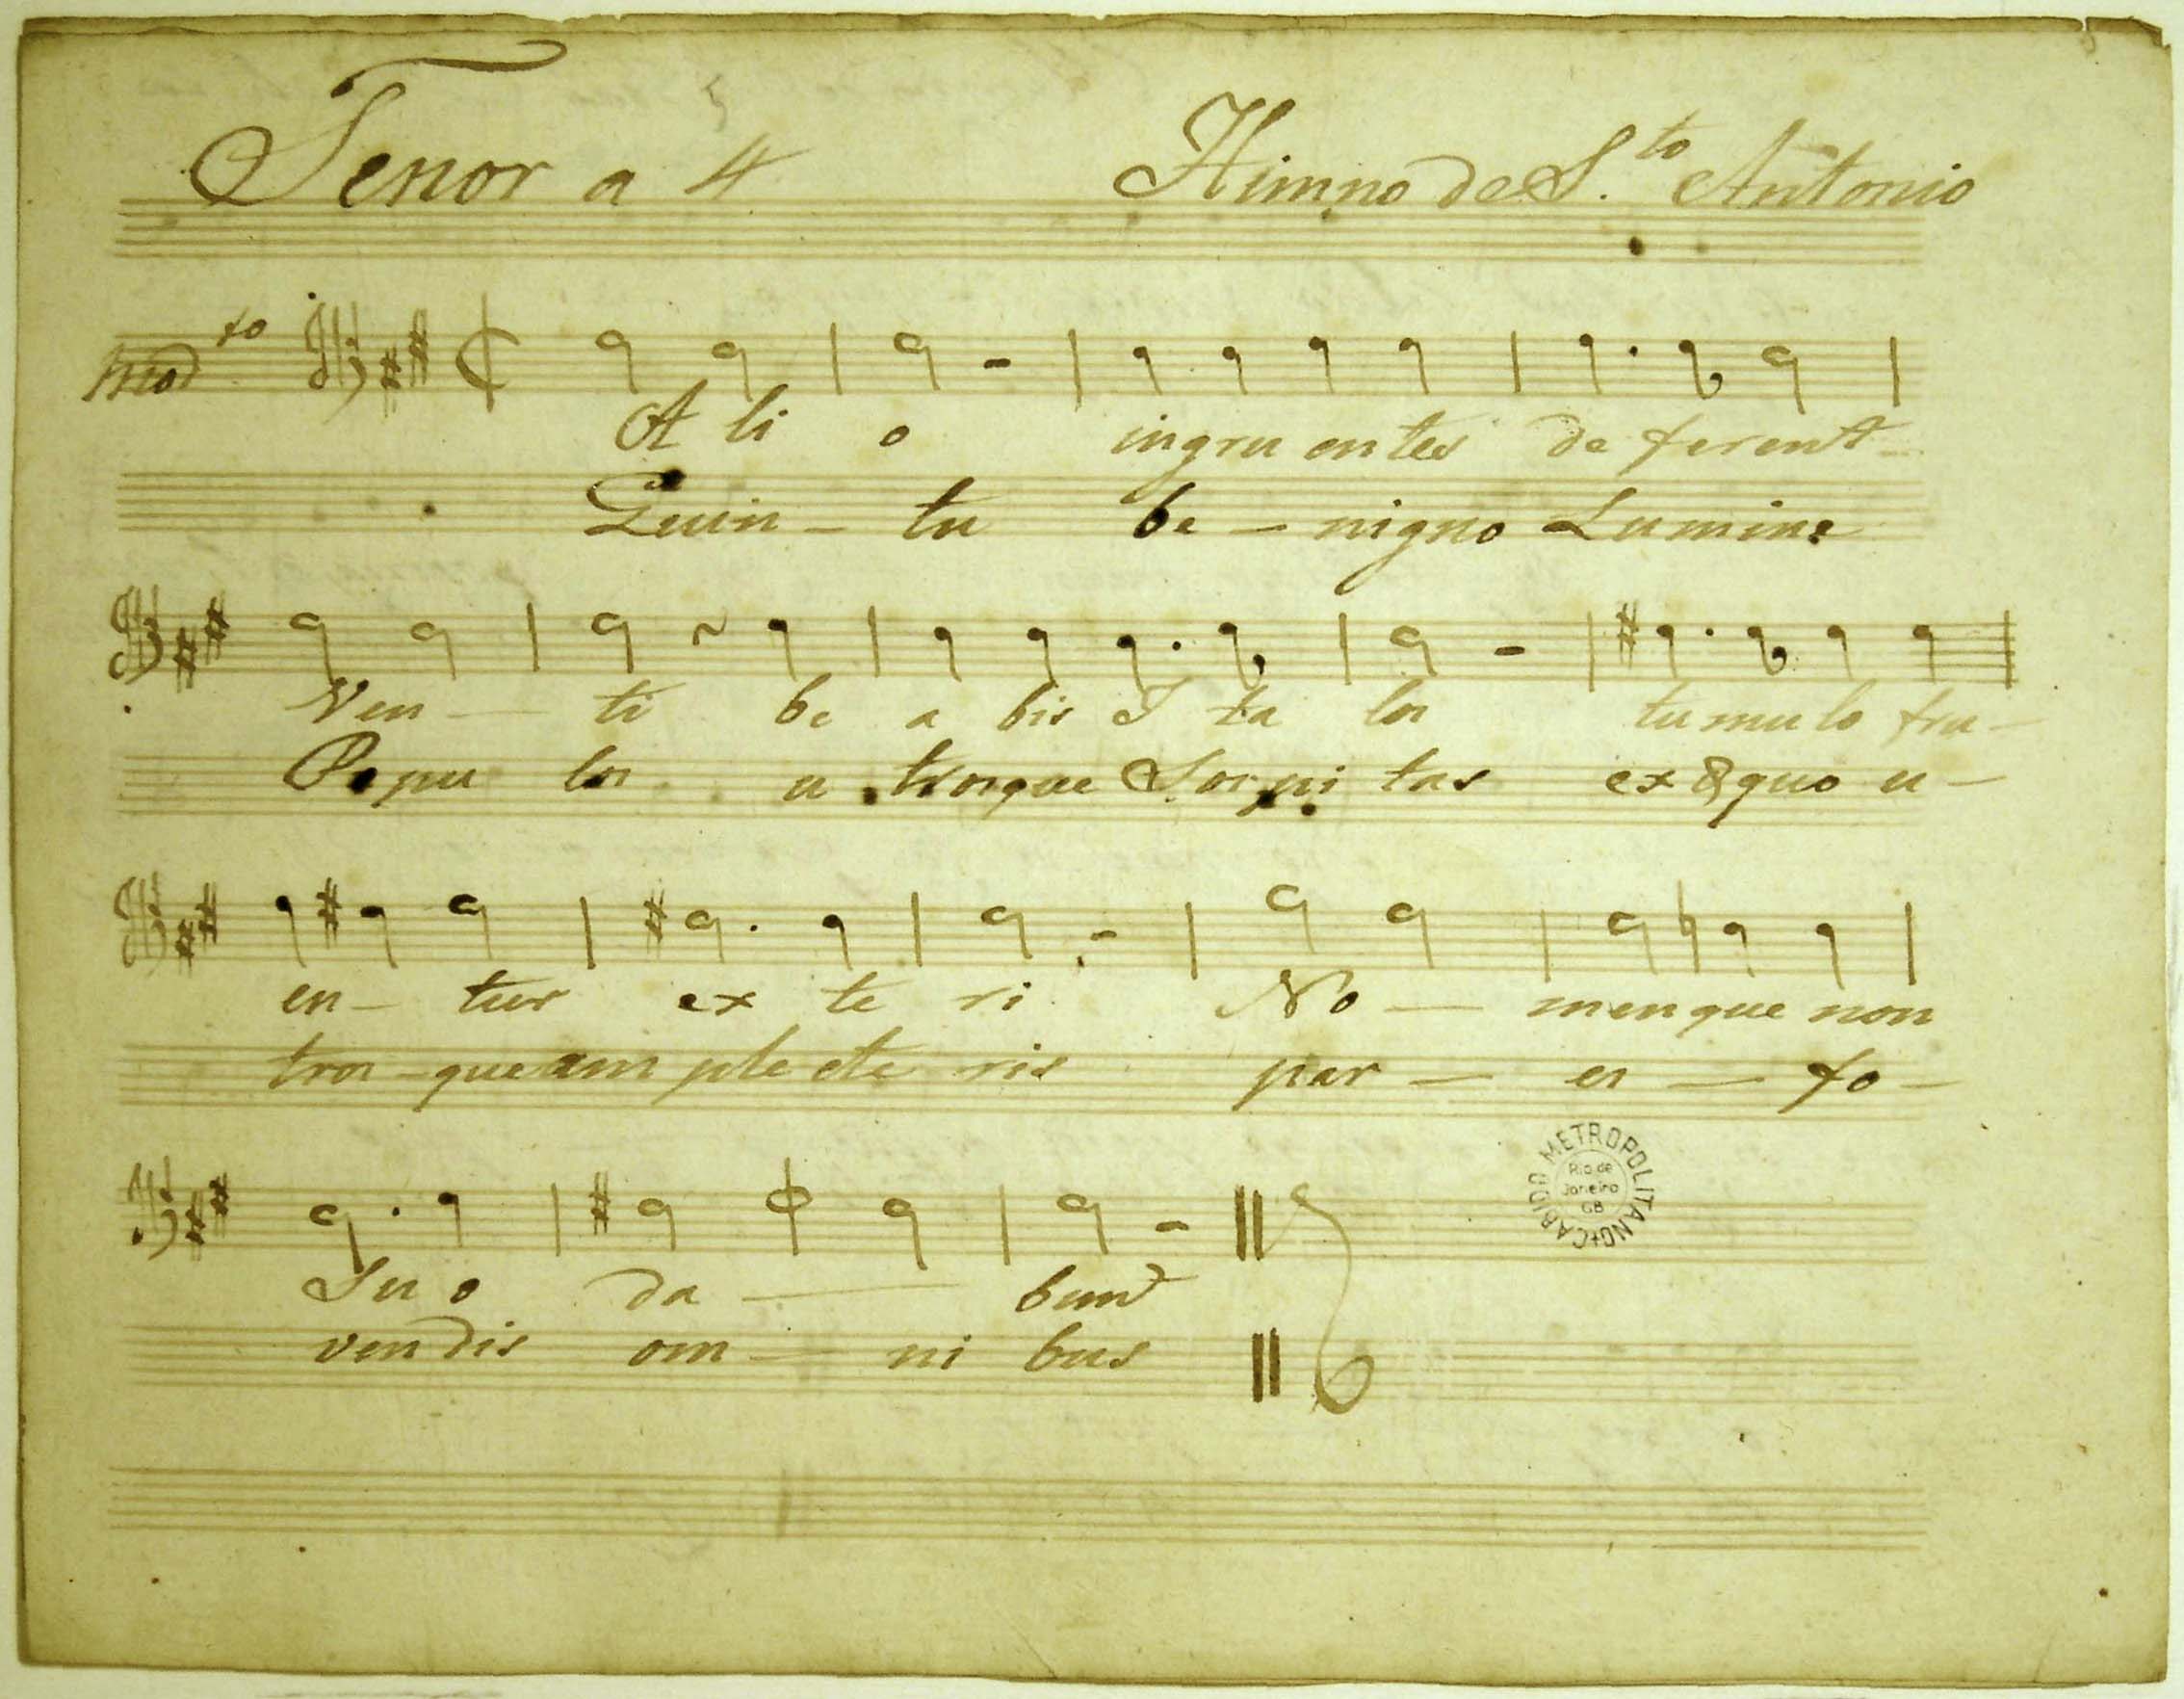 Tenor a 4 Himno de S.to Antonio
Modto
A li o ingru entes de ferent
Quin - tu be - nigno Lumine
Ven - ti be a bis I ta los tumulo fru -
Popu los u trosque Sospi tas ex æquo u -
en - tur ex te ri No - menque non
tros - que am plecte ris par - es - fo -
Su o da - bunt
vendis om - ni bus
CABIDO METROPOLITANO
Rio de
Janeiro
GB